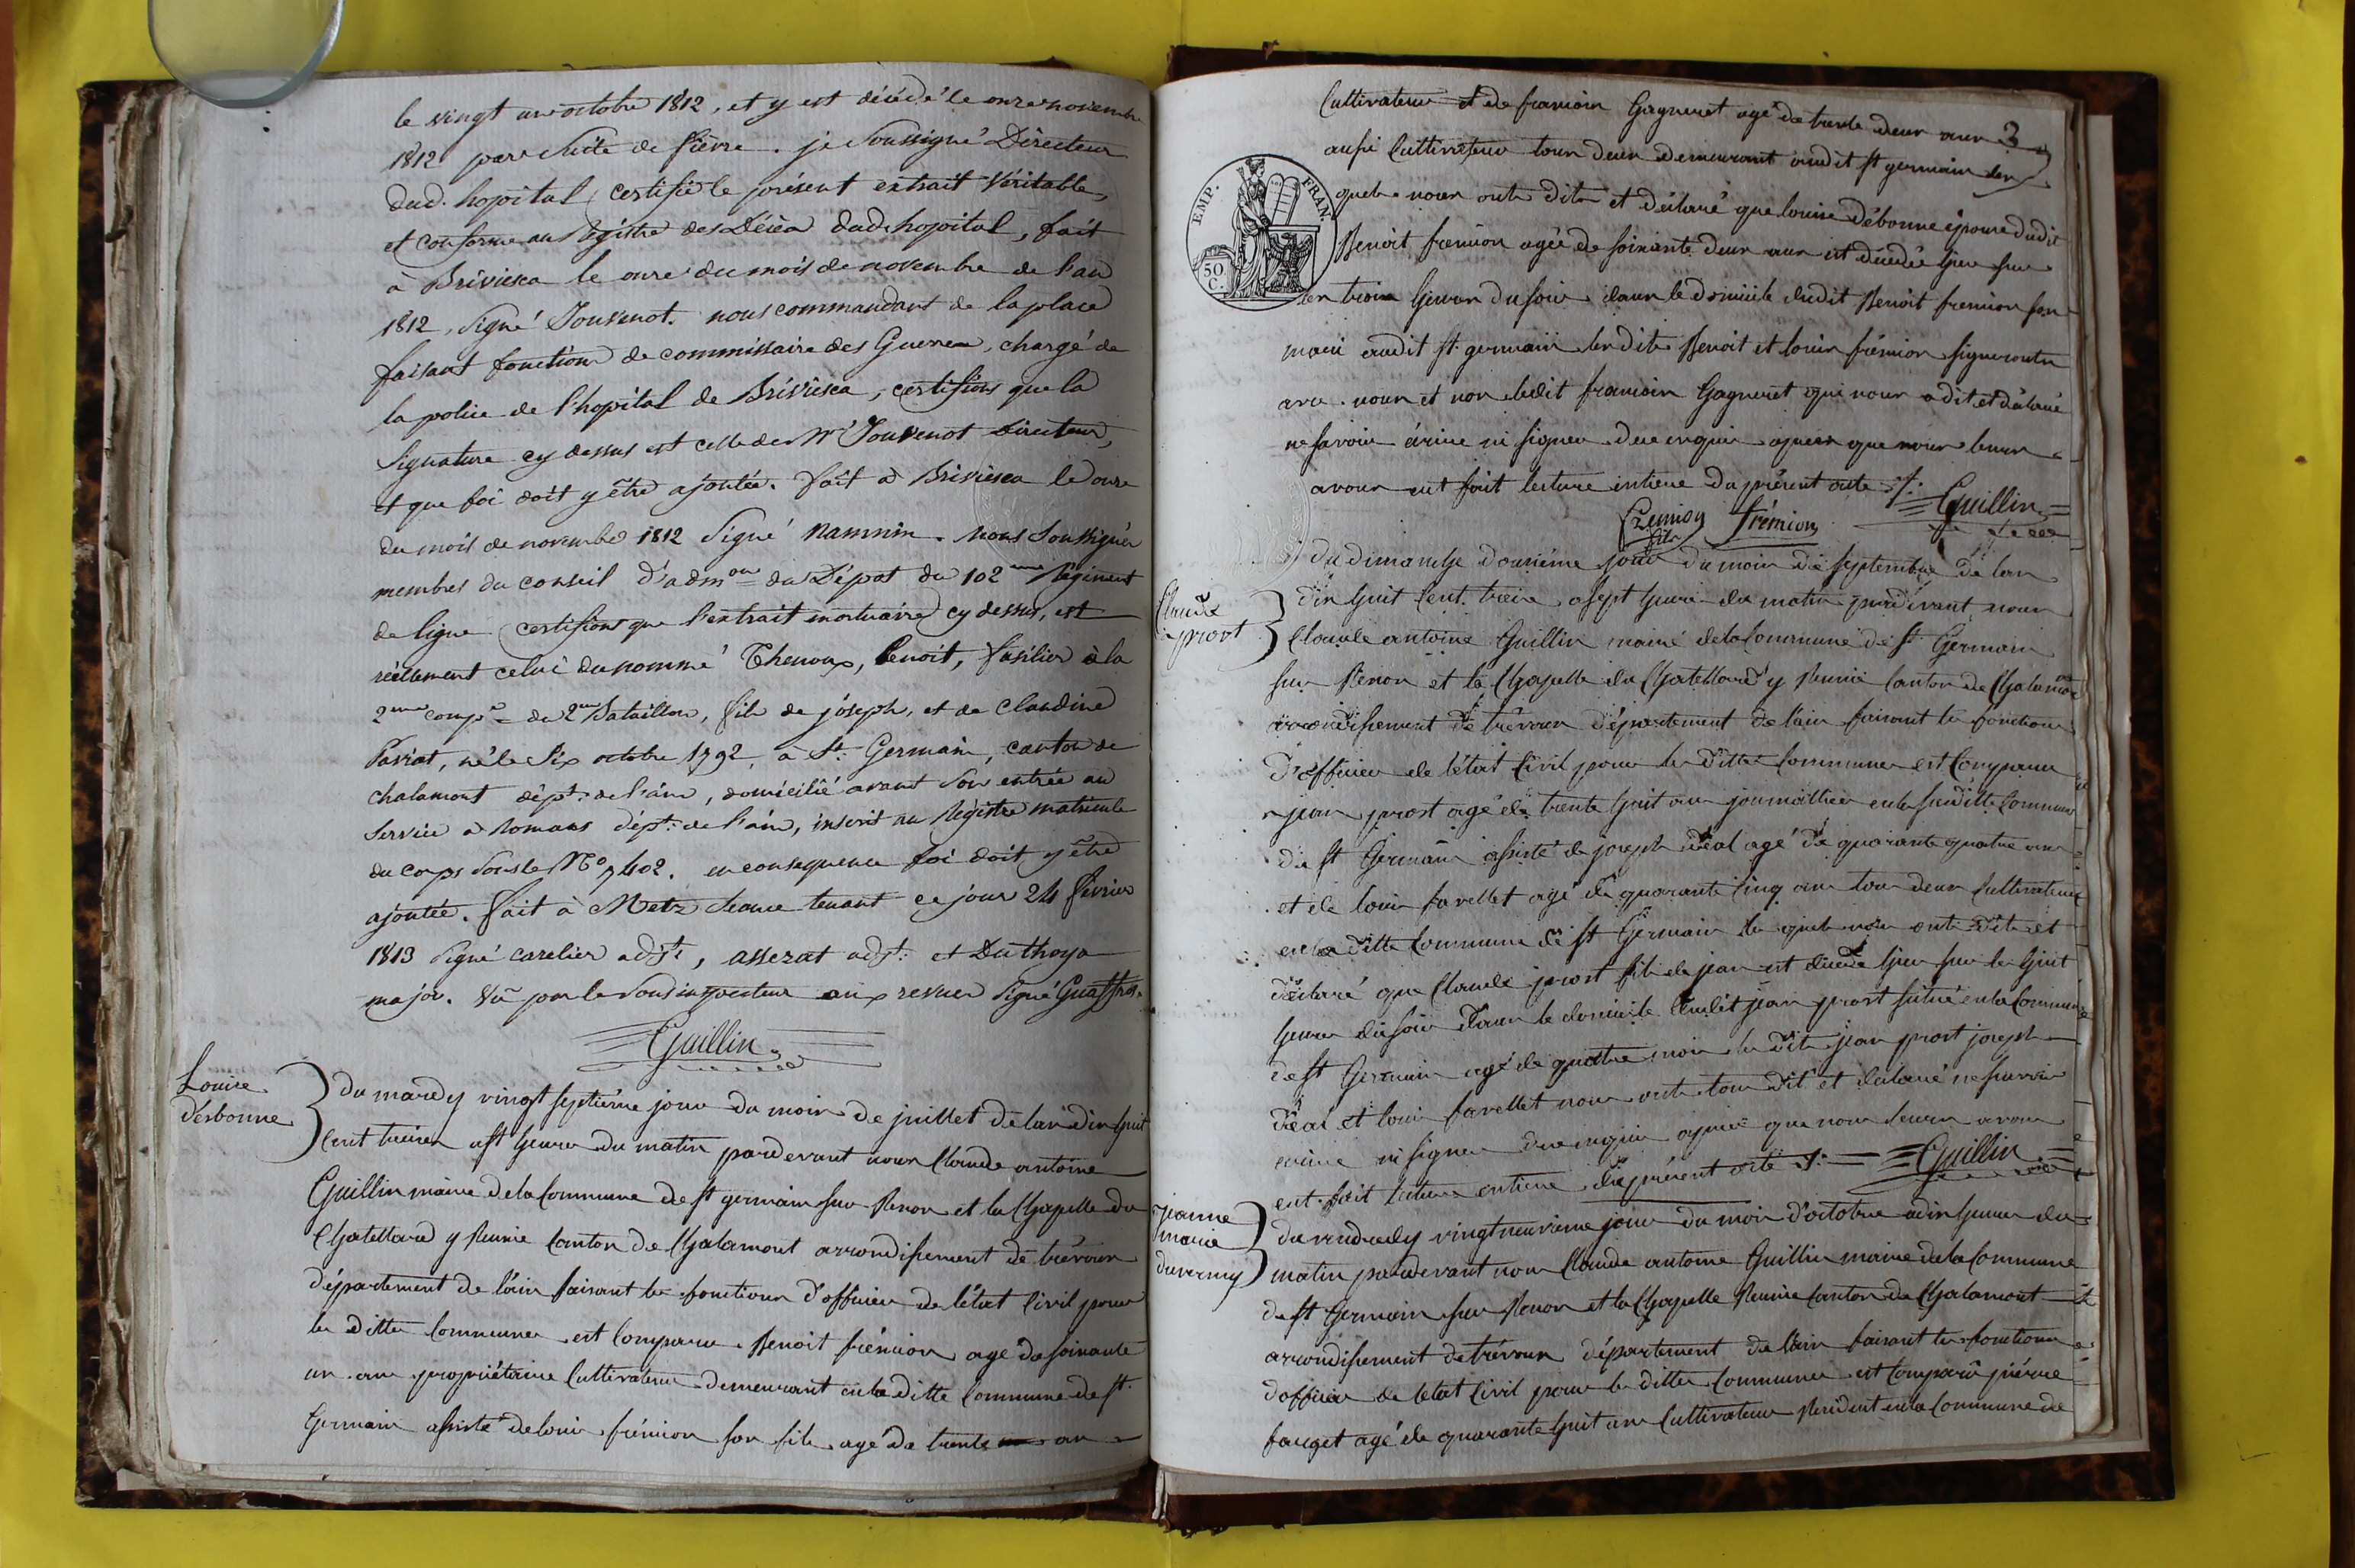 le vingt un octobre 1812, et y est décédé le onze novembre
1812 par suite de fièvre. je soussigné Directeur
dud. hopital certifie le présent extrait Véritable,
et conforme au Régistre des Décès dud. hopital, fait
à Briviesca le onze du mois de novembre de l'an
1812, signé Jouvenot. nous commandant de la place
faisant fonctions de commissaire des Guerres, chargé de
la police de l'hopital de Briviesca, certifions que la
signature cy dessus est celle de Mr Jouvenot Directeur,
et que foi doit y être ajoutée. fait à Briviesca le onze
du mois de novembre 1812 signé Nammin. Nous soussignés
membres du conseil d'admon du Dépot du 102eme Régiment
de ligne certifions que l'extrait mortuaire cy dessus, est
réellement celui du nommé Thenoux, benoit, fusilier à la
2eme compe du 2eme Bataillon, fils de joseph, et de Claudine
né le six octobre 1792, à St. Germain, canton de
chalamont dépt. de l'ain, domicilié avant son entrée au
service à Romans dépt. de l'ain, inscrit au Régistre matricule
du corps sous le No 7402. en consequence foi doit y être
ajoutée. fait à Metz séance tenant ce jour 24 février
1813 signé carelier adjt, asserat adjt. et Duthoya
major. Vû par le sous inspecteur aux revues signé
Guillin
Louise
désbonne
du mardy vingt septième jour du mois de juillet de lan din huit
cent treize a sept heures du matin pardevant nous Claude antoine
Guillin maire de la Commune de st germain sur Renon et la Chapelle du
Chatellard y Reunie Canton de Chalamont arrondisement de trévoux
département de l'ain faisant les fonctions d'officier de l'état Civil pour
les dittes Communes est Comparu Benoit frémion agé de soixante
un ans propriétaire Cultivateur demeurant en la ditte Commune de st.
Germain assisté de louis frémion son fils agé de trente an
3
Cultivateur et de francois Gagneret agé de trente deux ans
aussi Cultivateur tous deux demeurant audit st germain les
EMP. FRAN.
50 C.
quels nous ont dits et déclaré que louise débonne épouse dudit
Benoit fremion agée de soixante deux ans est décédée hier sur
les trois heures du soir dans le domicile dudit Benoit fremion son
mari audit st. germain les dits Benoit et louis frémion signeronts
avec nous et non ledit francois Gagneret qui nous a dit et déclaré
ne savoir écrire ni signer de ce enquis après que nous leurs
avons eut fait lecture entiere du présent acte ./.
Guillin
Fremion fils
frémion
du dimanche douzième jour du mois de septembre de lan
Claude
prost
din huit cent treize a sept heures du matin pardevant nous
Claude antoine Guillin maire de la Commune de st. Germain
sur Renon et la Chapelle du Chatellard y Reunie Canton de Chalamont
arrondisement de trévoux département de l'ain faisant les fonctions
d'officier de l'état Civil pour les dittes Communes est Comparu
jean prost agé de trente huit ans journallier en la susditte Commune
de st Germain assisté de joseph agé de quarante quatre ans
et de louis favellet agé de quarante cinq ans tous deux Cultivateurs
en la ditte Commune de st Germain les quels nous ont dits et
déclaré que Claude prost fils de jean est décédé hier sur les huit
heures du soir dans le domicile dudit jean prost situé en la Commune
de st Germain agé de quatre mois les dits jean prost joseph
et louis favellet nous ont tous dit et déclaré ne savoir
écrire ni signer de ce enquis après que nous leurs avons
eut fait lecture entiere du présent acte ./.
Guillin
jeanne
marie
duvernay
du vendredy vingt neuvième jour du mois d'octobre a din heures du
matin pardevant nous Claude antoine Guillin maire de la Commune
de st Germain sur Renon et la Chapelle Reunie Canton de Chalamont
arrondisement de trévoux département de l'ain faisant les fonctions
d'officier de l'état Civil pour les dittes Communes est Comparu pierre
farget agé de quarante huit ans Cultivateur Résident en la Commune de